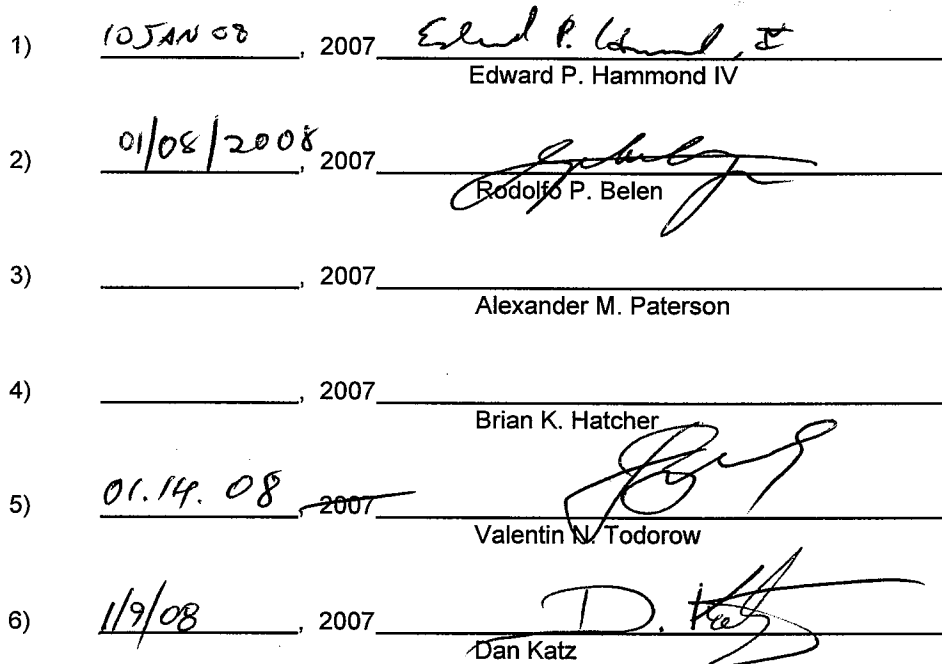 1) 10 JAN 08, 2007 Edward P. Hammond, IV
Edward P. Hammond IV
2) 01/08/2008, 2007
Rodolfo P. Belen
3) , 2007
Alexander M. Paterson
4) , 2007
Brian K. Hatcher
5) 01.14.08, 2007
Valentin N. Todorow
6) 1/9/08, 2007 D. Katz
Dan Katz